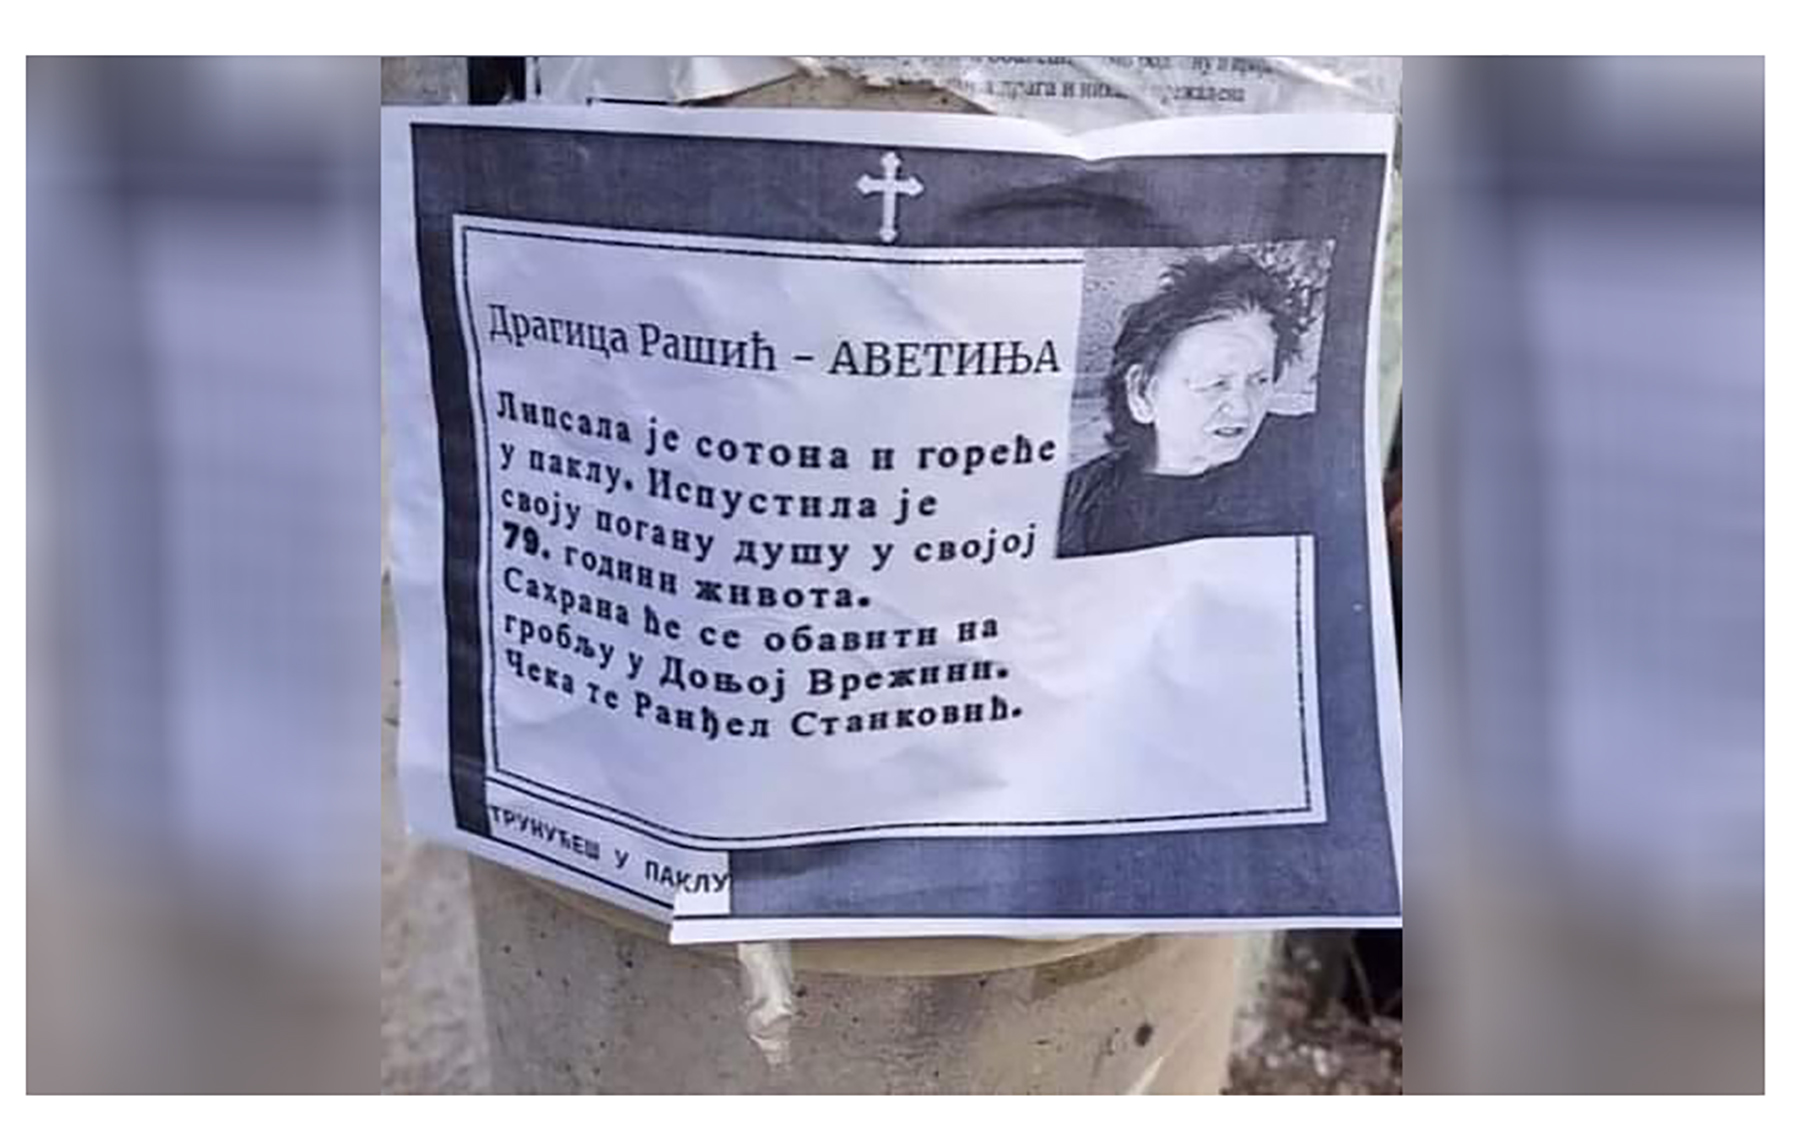 драга и
Драгица Рашић – АВЕТИЊА
Липсала је сотона и гореће
у паклу. Испустила је
своју погану душу у својој
79. години живота.
Сахрана ће се обавити на
гробљу у Доњој Врежини.
Чека те Ранђел Станковић.
ТРУНУЋЕШ У ПАКЛУ